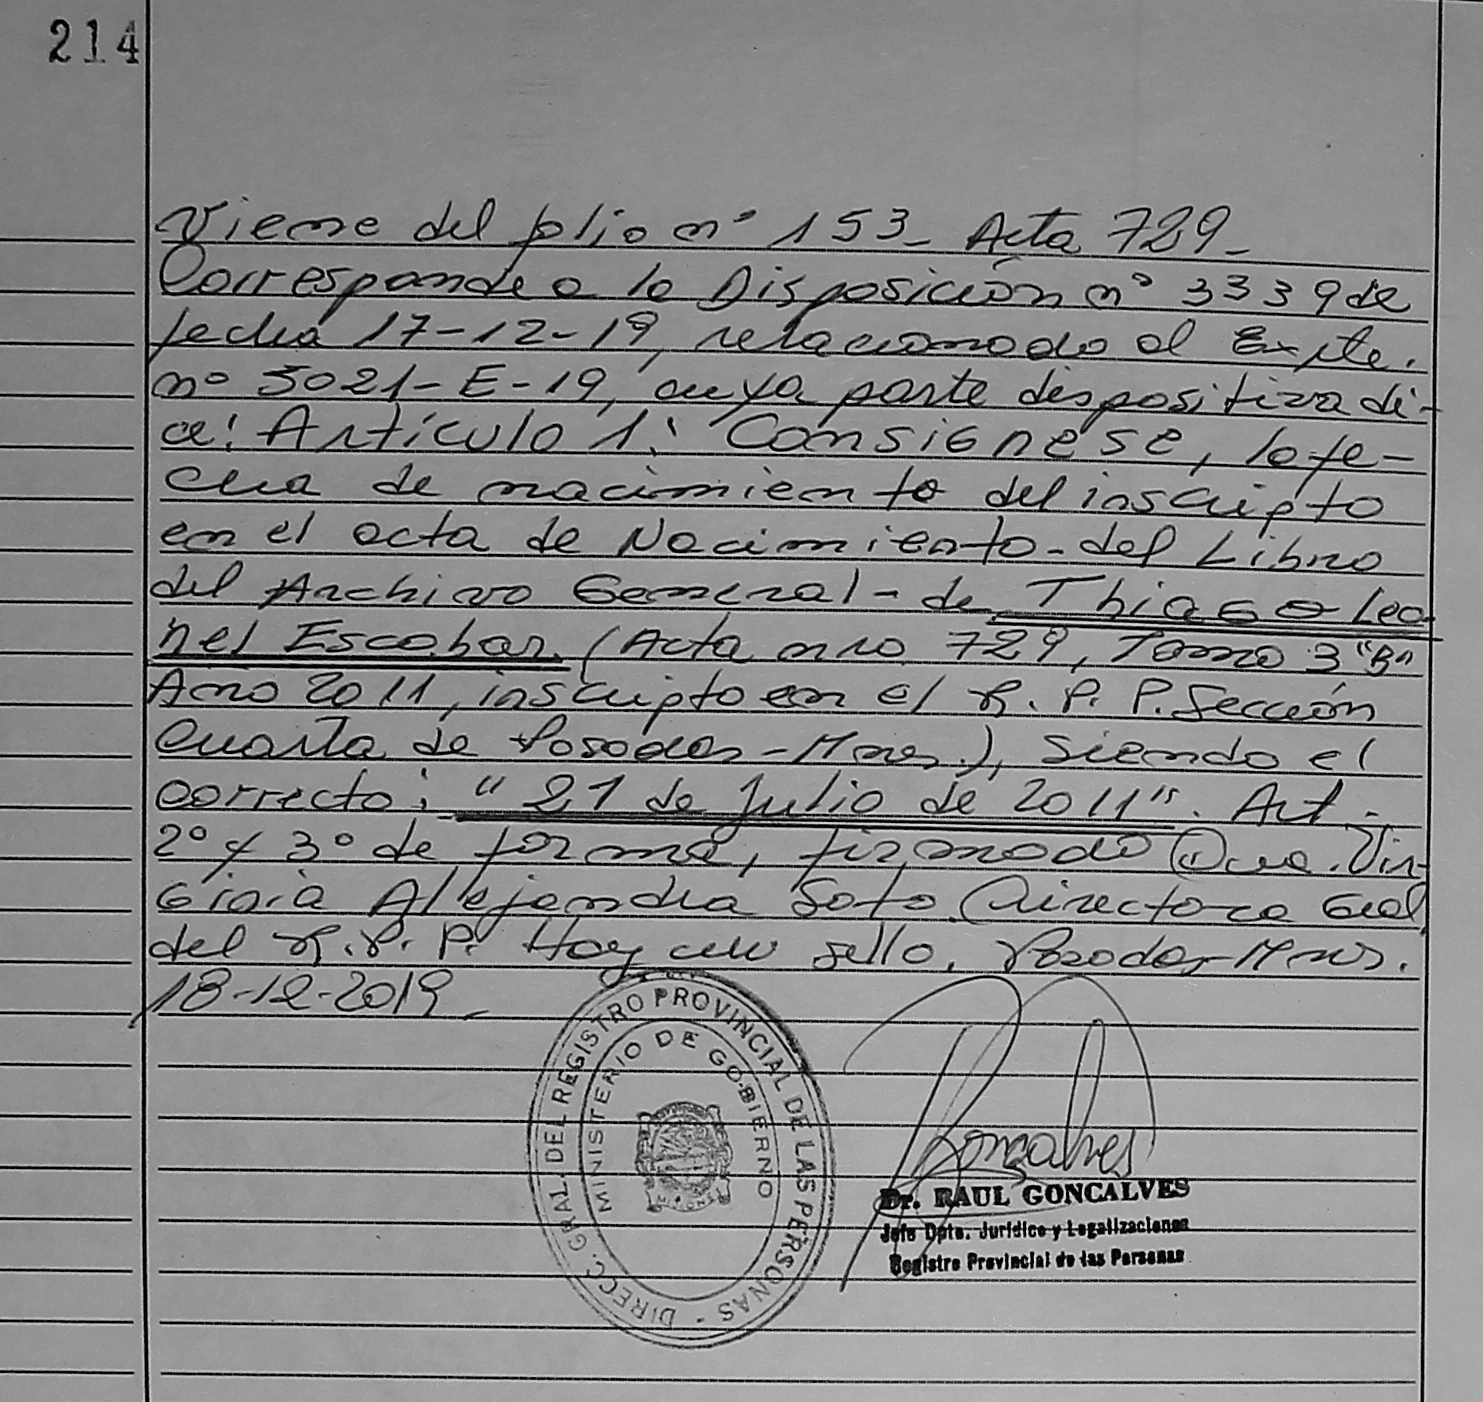 214
Viene del folio nº 153_ Acta 729_
Corresponde a la Disposición nº 3339 de
fecha 17-12-19, relacionado al Expte.
nº 5021-E-19, cuya parte dispositiva di-
ce: Artículo 1: Consignese, la fe-
cha de nacimiento del inscripto
en el acta de Nacimiento-del Libro
del Archivo General- de Thiago Leo
nel Escobar (Acta nro 729, Tomo 3 "B"
Año 2011, inscripto en el R. P. P. Sección
Cuarta de Posadas-Mnes.), siendo el
correcto: "21 de Julio de 2011". Art.
2º y 3º de forma, firmado Dra. Vir-
ginia Alejandra Soto Directora Gral
del R. P. P. Hay un sello. Posadas-Mnes.
18-12-2019_
DIRECC. GRAL. DEL REGISTRO PROVINCIAL DE LAS PERSONAS -
MINISTERIO DE GOBIERNO
Goncalves
Dr. RAUL GONCALVES
Jefe Dpto. Jurídico y Legalizaciones
Registro Provincial de las Personas